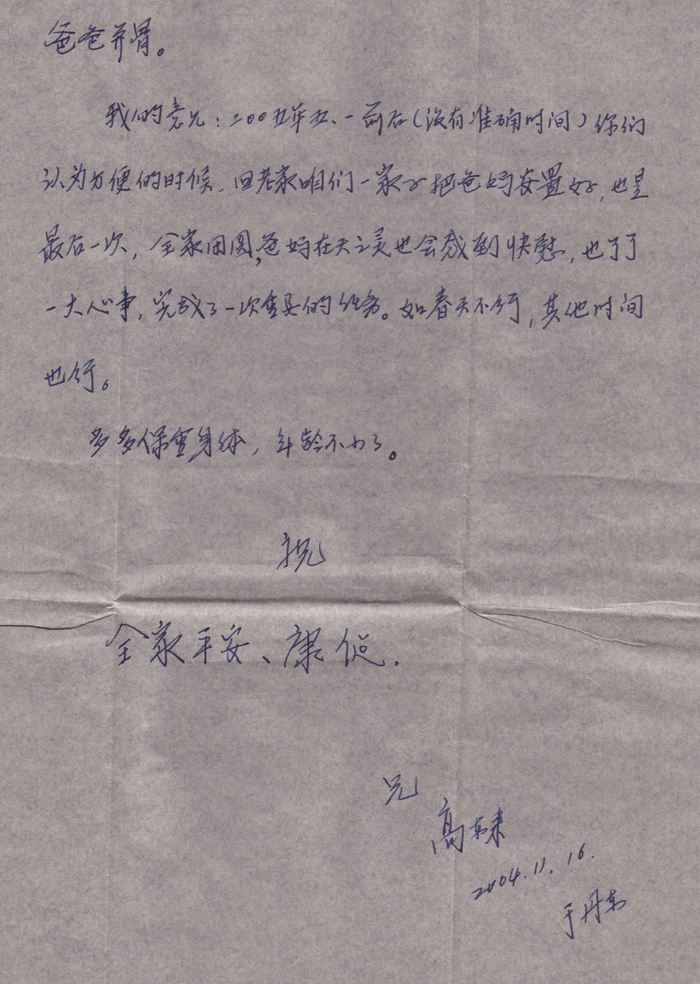 爸爸并骨。
我的意见：二00五年五、一前后(没有准确时间)你们
认为方便的时候，回老家咱们一家子把爸妈安置好，也是
最后一次，全家团圆，爸妈在天之灵也会感到快慰，也了了
一大心事，完成了一次重要的任务。如春天不行，其他时间
也行。
多多保重身体，年龄不小了。
祝
全家平安、康健.
兄
高
2004.11.16.
于丹东